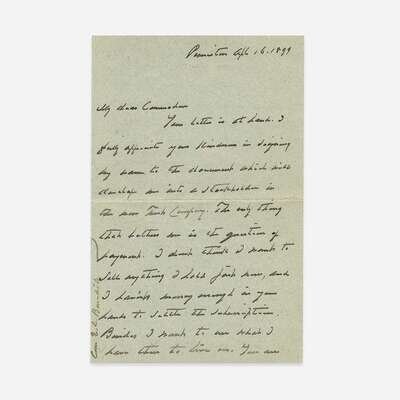 Princeton Apl. 16. 1899
My dear Commodore
Your letter is at hand. I
fully appreciate your kindness in signing
my name to the document which will
develop me into a stockholder in
the new Company. The only thing
that bothers me is the question of
payment. I don't think I want to
sell anything I hold just now, and
I haven't money enough in your
hands to settle the subscription.
Besides I want to use what I
have there to live on. You are
Com E. C. Benedict